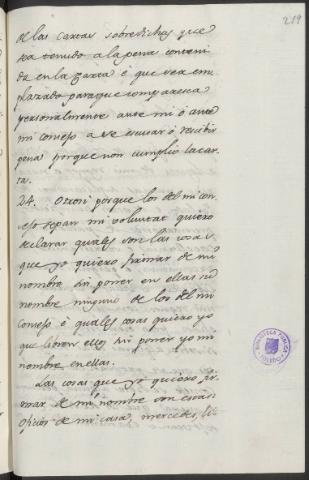 219
de las cartas sobredichas que
sea tenudo a la pena conteni
da en la carta é que sea em
plazado para que comparesca
personalmente ante mi ó ante
mi consejo a se escusar ó recibir
pena porque non cumplio la car
ta.
24. Otrosi porque los del mi con
sejo sepan mi voluntat quiero
declarar quales son las cosas
que yo quiero firmar de mi
nombre sin poner en ellas su
nombre ninguno de los del mi
Consejo é quales cosas quiero yo
que libren ellos sin poner yo mi
nombre en ellas.
Las cosas que yo quiero fir
mar de mi nombre son estas:
Oficios de mi casa, mercedes, li
BIBLIOTECA PUBLICA
TOLEDO